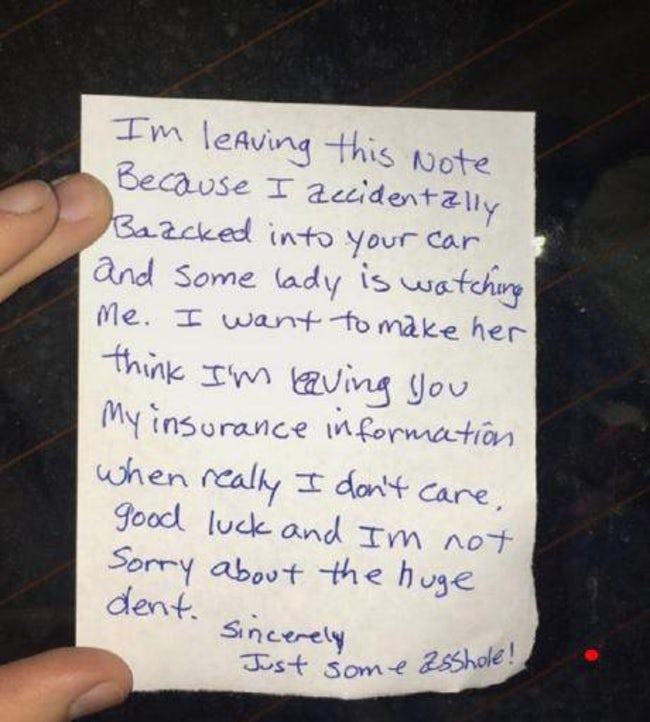 Im leaving this Note
Because I accidentally
Baacked into your car
and some lady is watching
Me. I want to make her
think I'm leaving you
My insurance information
when really I don't care.
good luck and Im not
Sorry about the huge
dent.
Sincerely
Just some asshole!